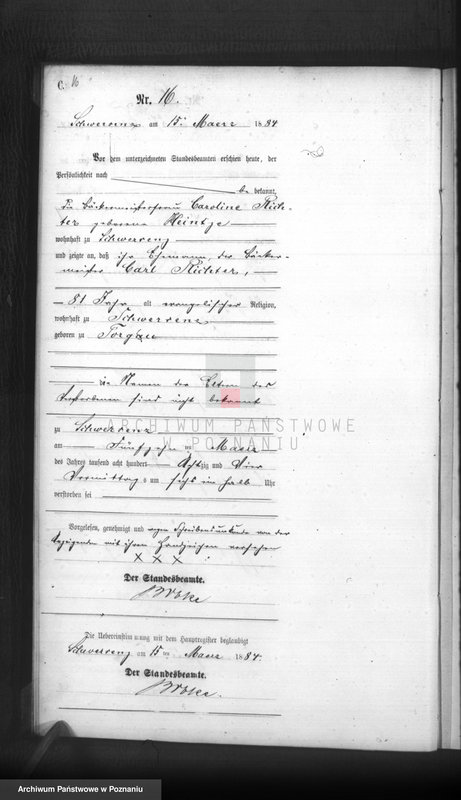 C. 16
Nr. 16.
Schwersenz am 15. Maerz 1884
Vor dem unterzeichneten Standesbeamten erschien heute, der
Persönlichkeit nach
be kannt,
die Bäckermeisterfrau Caroline Rich-
ter geborene Heintze
wohnhaft zu Schwersenz
und zeigte an, daß ihr Ehemann, der Bäcker-
meister Carl Richter,
81 Jahr alt evangelischer Religion,
wohnhaft zu Schwersenz
geboren zu Torgau
die Namen der Eltern des
Verstorbenen sind nicht bekannt
ARCHIWUM PAŃSTWOWE
W POZNANIU
zu Schwersenz
am Fünfzehnten Maerz
des Jahres tausend acht hundert Achtzig und Vier
Vormittags um sechs ein halb Uhr
verstorben sei
Vorgelesen, genehmigt und wegen Schreibensunkunde von der
Anzeigenden mit ihren Handzeichen versehen
X X X
Der Standesbeamte.
Die Uebereinstimmung mit dem Hauptregister beglaubigt
Schwersenz am 15 ten Maerz 1884.
Der Standesbeamte.
Archiwum Państwowe w Poznaniu